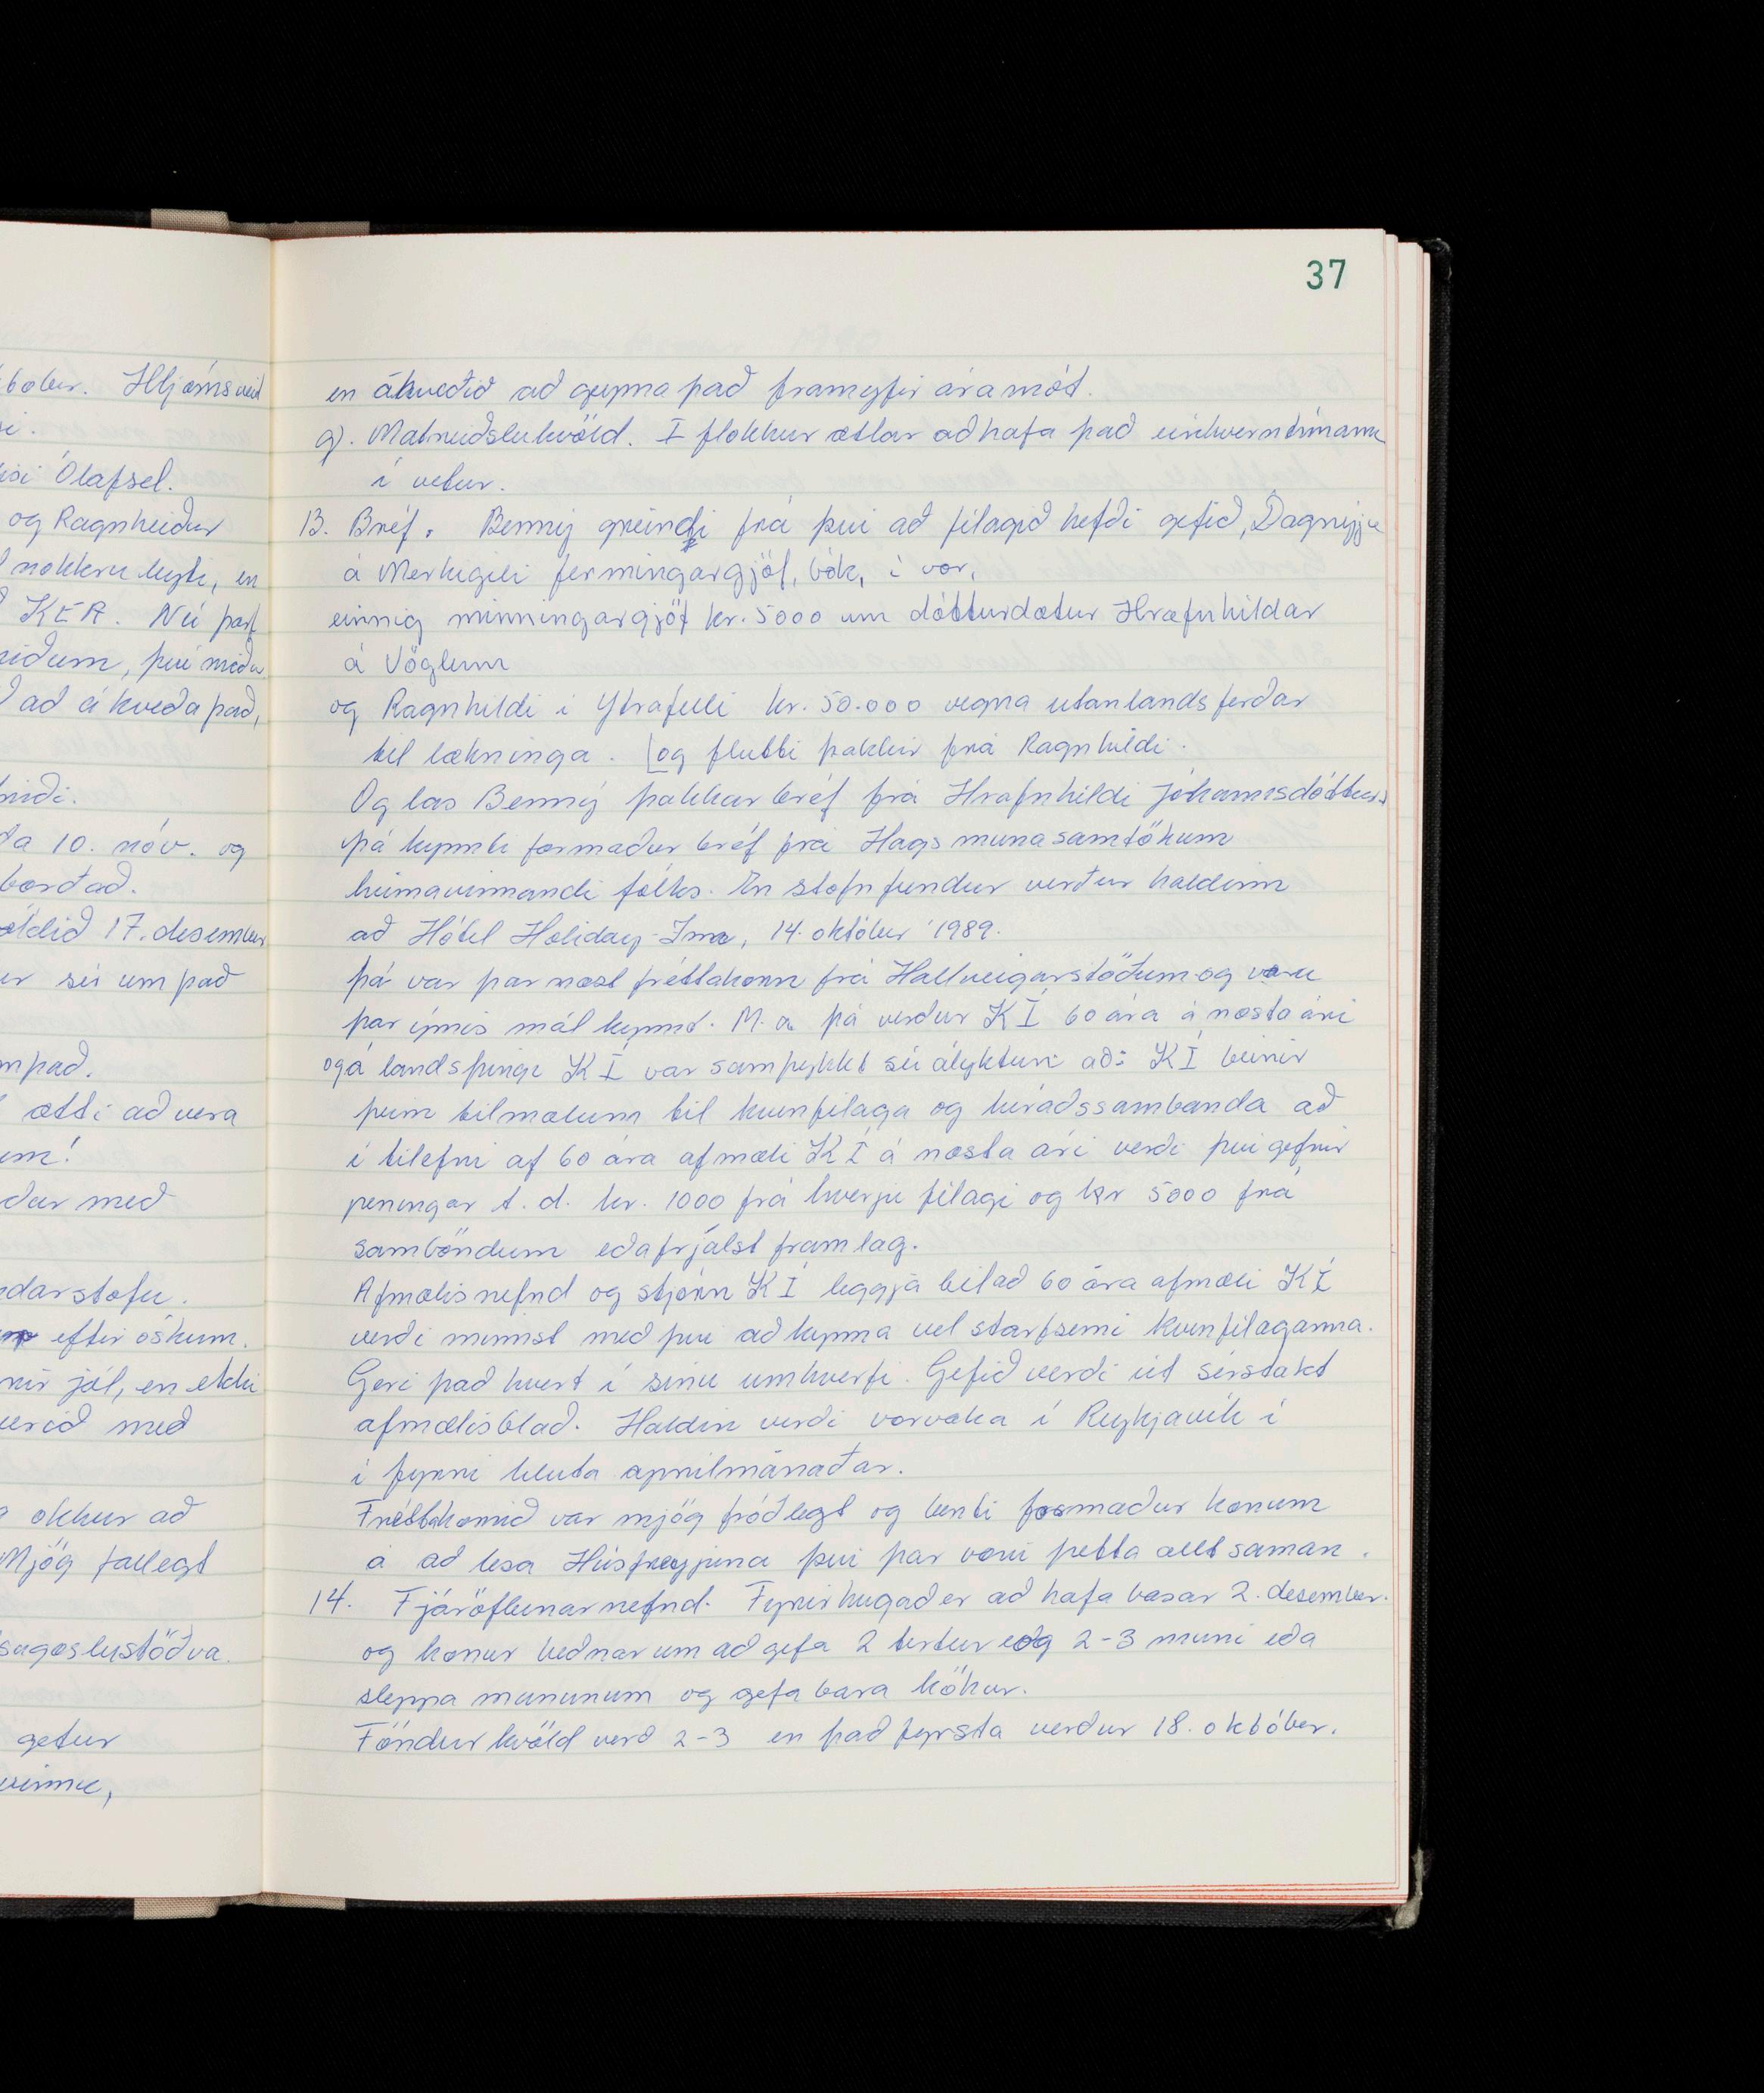 37
boður. Hljómsveit
si.
Ólafsel.
og Ragnheiður
nokkru leyti, en
KEA. Nú þarf
því miður
að ákveða það,
10. nóv. og
borðað.
17. desember
er séu um það
um það.
ætti að vera
um!
með
eftir óskum.
jól, en ekki
verið með
okkur að
Mjög fallegt
getur
vinnu,
en ákveðið að geyma það framyfir áramót.
g). Matreiðslukvöld. I flokkur ætlar að hafa það einhverntímann
í vetur.
13. Bréf. Benný greindi frá því að félagið hefði gefið, Dagnýju
á Merkigili fermingargjöf, bók, í vor,
einnig minningargjöf kr. 5000 um dótturdætur Hrafnhildar
á Vöglum
og Ragnhildi í Ytrafelli kr. 50.000 vegna utanlandsferðar
til lækninga. [og flutti þakkir frá Ragnhildi.
Og las Benný þakkarbréf frá Hrafnhildi Jóhannsdóttur.
þá kynnti formaður bréf frá Hagsmunasamtökum
heimavinnandi fólks. En stofnfundur verður haldinn
að Hótel Holiday-Inn, 14. október '1989.
þá var þar næst fréttakorn frá Hallveigarstöðum og voru
þar ýmis mál kynnt. M.a. þá verður KÍ 60 ára á næsta ári
og á landsþingi KÍ var samþykkt sú ályktun að: KÍ beinir
þeim tilmælum til kvenfélaga og héraðssambanda að
í tilefni af 60 ára afmæli KÍ á næsta ári verði því gefnir
peningar t.d. kr. 1000 frá hverju félagi og kr 5000 frá
samböndum eða frjálst framlag.
Afmælisnefnd og stjórn KÍ leggja til að 60 ára afmæli KÍ
verði minnst með því að kynna vel starfsemi kvenfélaganna.
Geri það hvert í sínu umhverfi. Gefið verði út sérstakt
afmælisblað. Haldin verði vorvaka í Reykjavík í
í fyrri hluta aprílmánaðar.
Fréttakornið var mjög fróðlegt og benti formaður konum
á að lesa Húsfreyjuna því þar væri þetta allt saman.
14. Fjáröflunarnefnd. Fyrirhugað er að hafa basar 2. desember.
og konur beðnar um að gefa 2 tertur og 2-3 muni eða
sleppa mununum og gefa bara kökur.
Föndurkvöld verð 2-3 en það fyrsta verður 18. október.